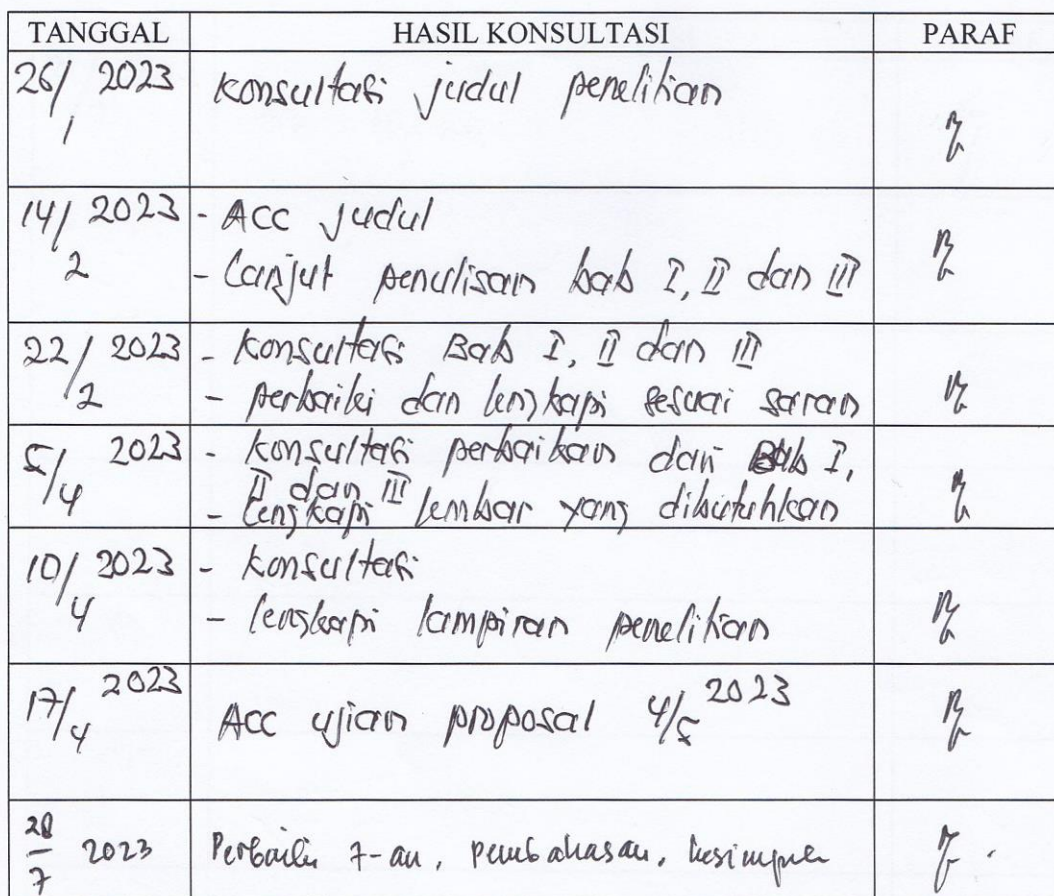 TANGGAL HASIL KONSULTASI PARAF
26/1 2023 Konsultasi judul penelitian
14/2 2023 - Acc judul
- Lanjut penulisan bab I, II dan III
22/2 2023 - Konsultasi Bab I, II dan III
- perbaiki dan lengkapi sesuai saran
5/4 2023 - Konsultasi perbaikan dari Bab I,
II dan III
- Lengkapi lembar yang dibutuhkan
10/4 2023 - Konsultasi
- lengkapi lampiran penelitian
17/4 2023 Acc ujian proposal 4/5 2023
28/7 2023 Perbaiki 7-an, pembahasan, kesimpulan